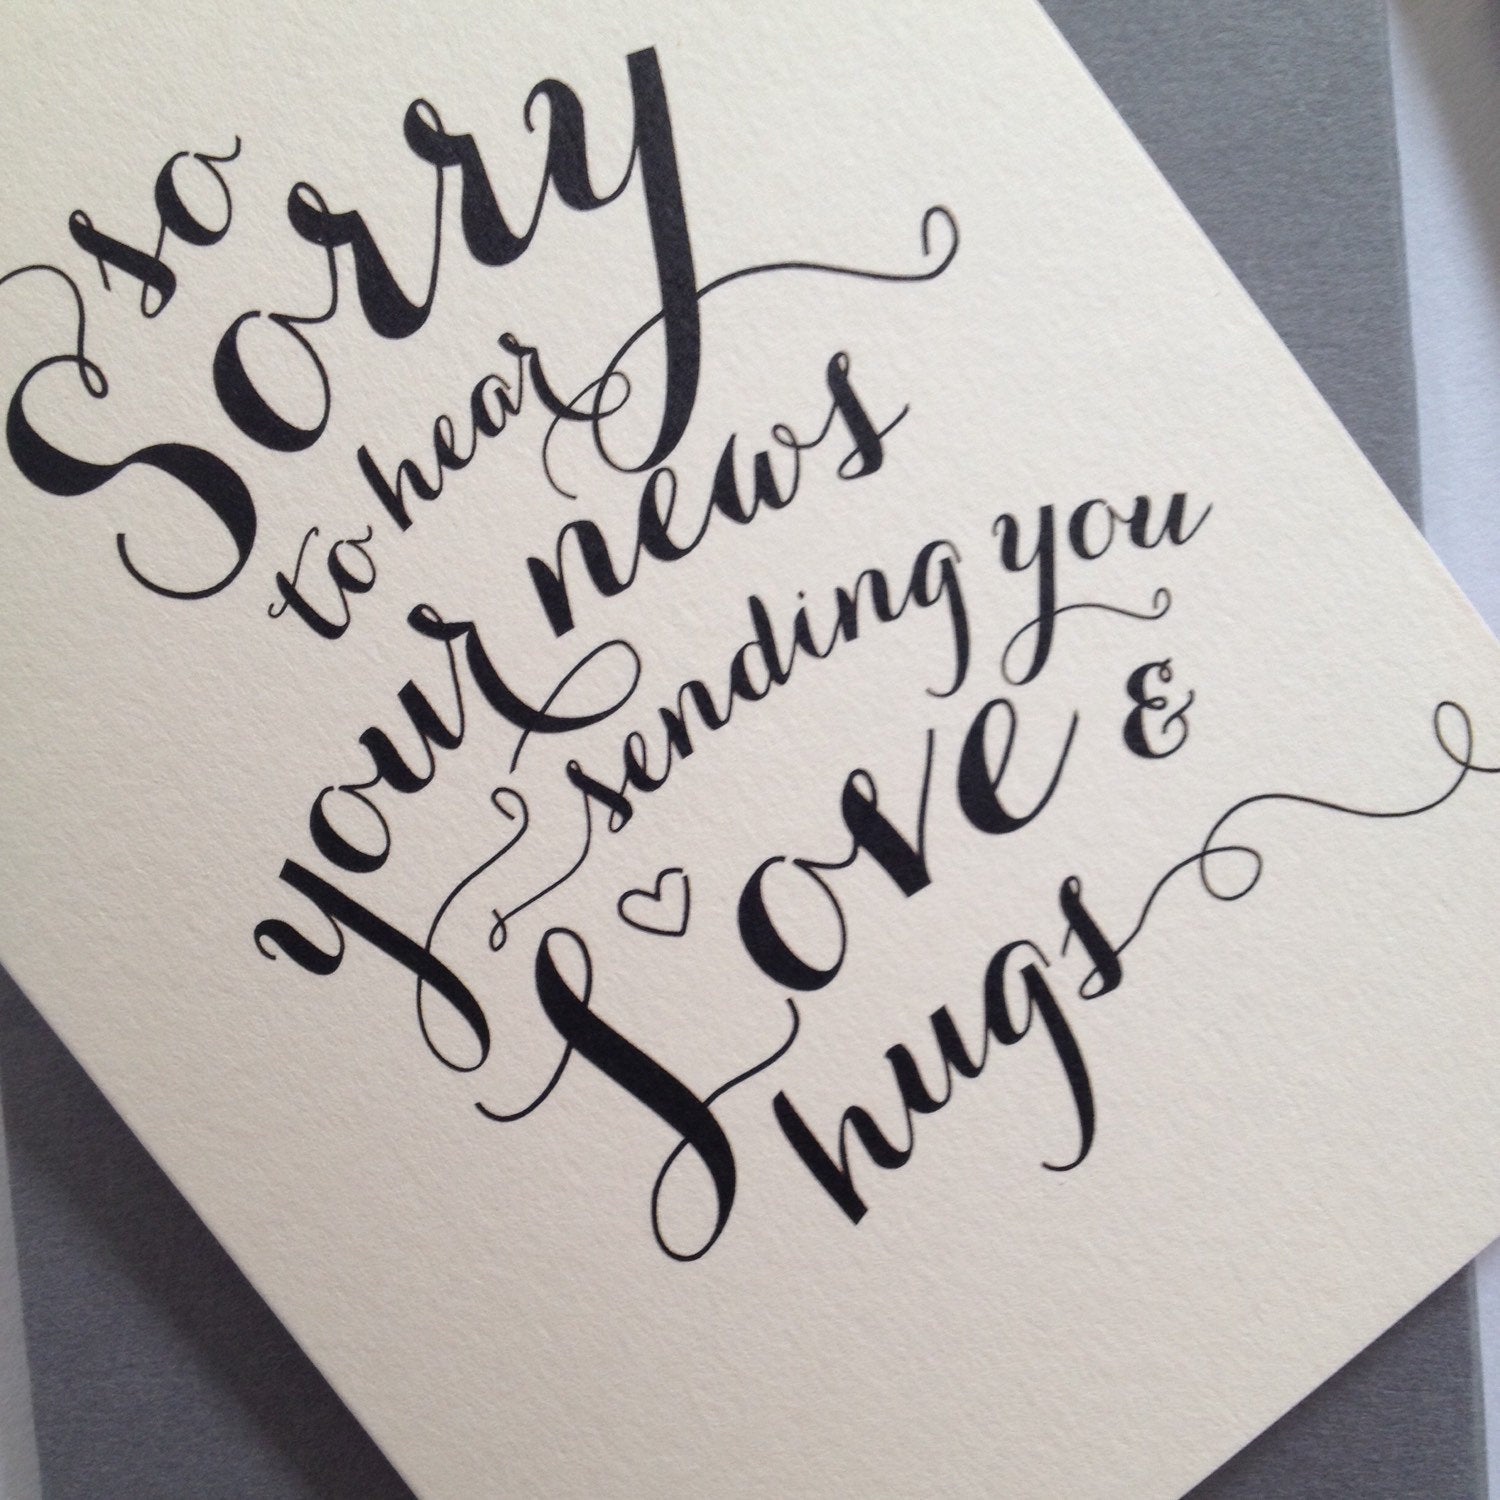 so
Sorry
to hear
your news
sending you
Love &
hugs